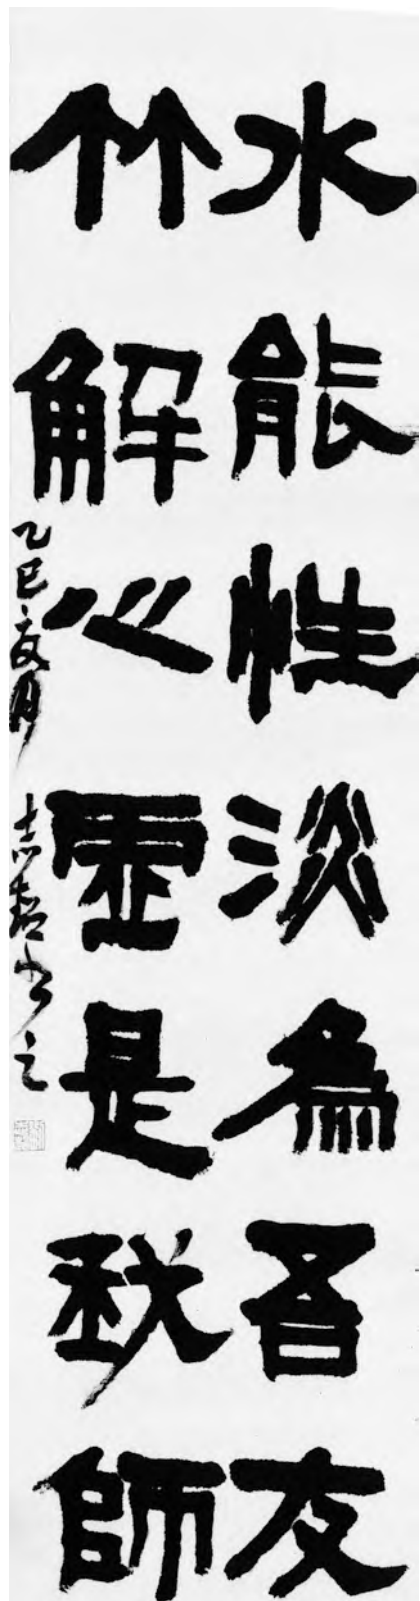 水能性淡為吾友
竹解心虛是我師
乙巳夏月 志超書之